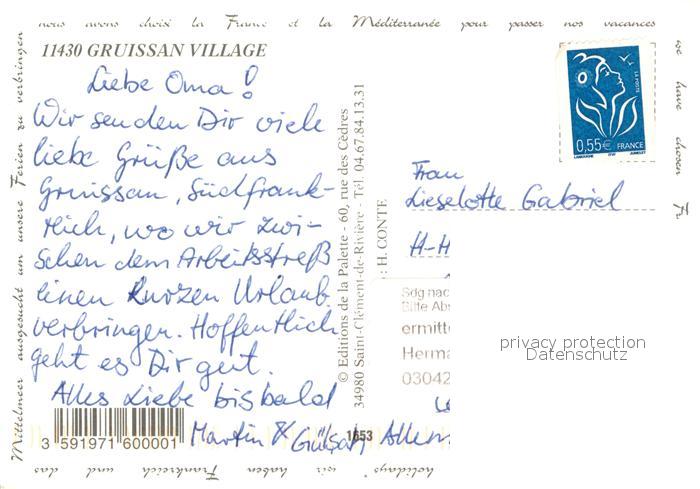 nous avons choisi la France et la Méditerranée pour passer nos vacances
we have chosen Fr
Mittelmeer ausgesucht um unsere Ferien zu verbringen
holidays" wir haben Frankreich und das
11430 GRUISSAN VILLAGE
Liebe Oma!
Wir senden Dir viele
liebe Grüße aus
Gruissan, Südfrank-
reich, wo wir zwi-
schen dem Arbeitsstreß
einen kurzen Urlaub
verbringen. Hoffentlich
geht es Dir gut.
Alles Liebe bis bald
Martin & Gülşah
3 591971 600001
1653
© Editions de la Palette - 60, rue des Cèdres
34980 Saint-Clément-de-Rivière - Tél. 04.67.84.13.31
: H. CONTE
LA POSTE
0,55€ FRANCE
Frau
Lieselotte Gabriel
H-H
Sdg nac
Bitte Abs
ermitt
Herma
03042
Allem
privacy protection
Datenschutz